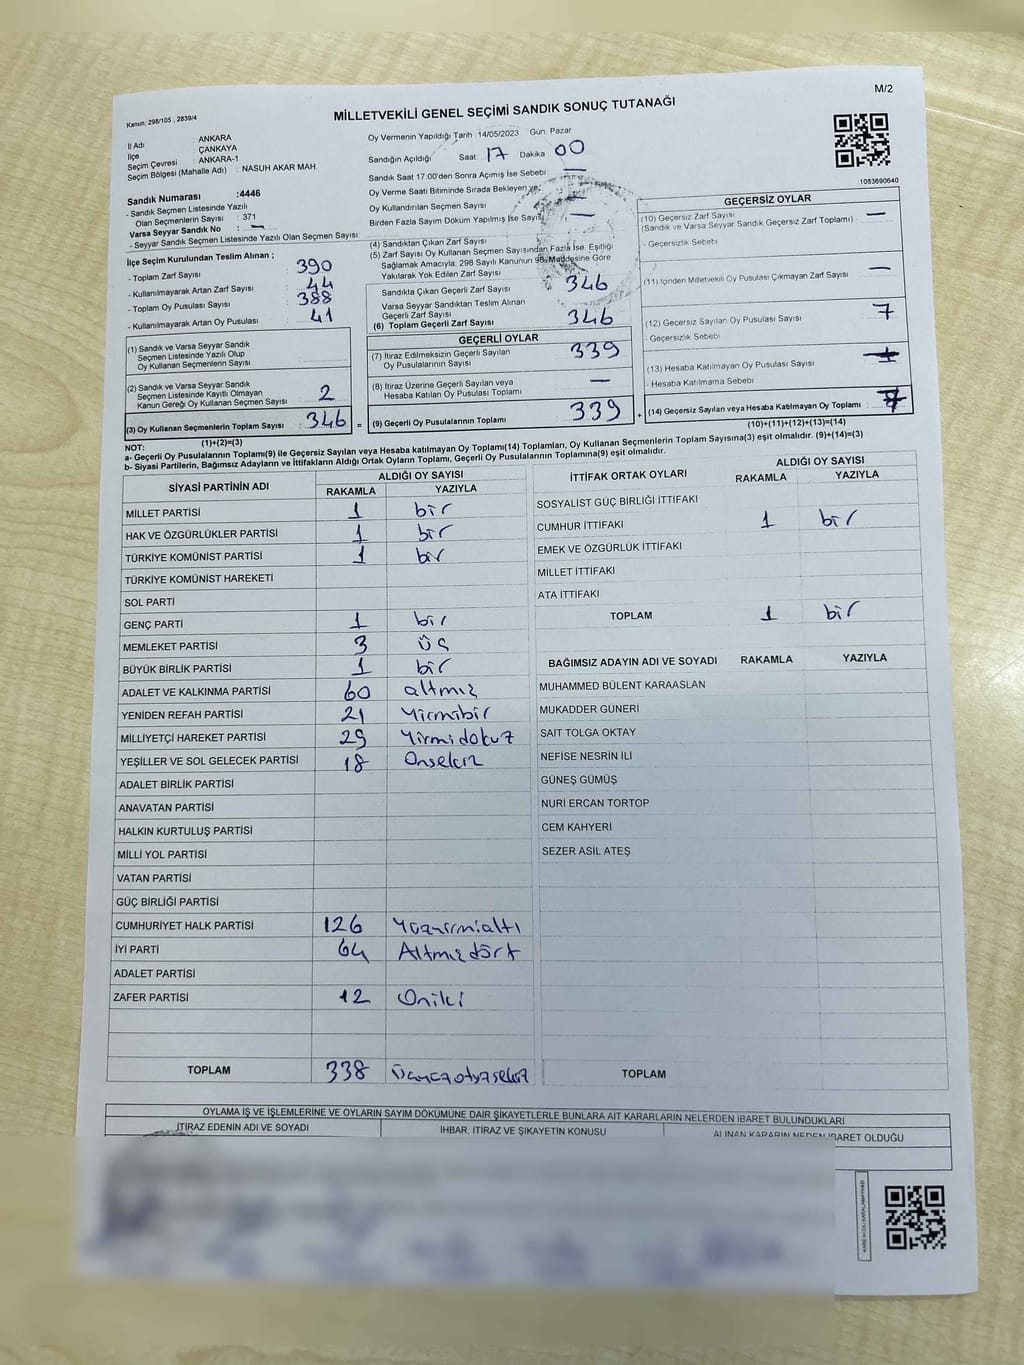 M/2
Kanun, 298/105 , 2839/4
MİLLETVEKİLİ GENEL SEÇİMİ SANDIK SONUÇ TUTANAĞI
İl Adı : ANKARA
İlçe : ÇANKAYA
Seçim Çevresi : ANKARA-1
Seçim Bölgesi (Mahalle Adı) : NASUH AKAR MAH.
Sandık Numarası :4446
- Sandık Seçmen Listesinde Yazılı
Olan Seçmenlerin Sayısı : 371
Varsa Seyyar Sandık No : —
- Seyyar Sandık Seçmen Listesinde Yazılı Olan Seçmen Sayısı
İlçe Seçim Kurulundan Teslim Alınan ;
- Toplam Zarf Sayısı 390
- Kullanılmayarak Artan Zarf Sayısı 44
- Toplam Oy Pusulası Sayısı 388
- Kullanılmayarak Artan Oy Pusulası 41
(1) Sandık ve Varsa Seyyar Sandık
Seçmen Listesinde Yazılı Olup
Oy Kullanan Seçmenlerin Sayısı
(2) Sandık ve Varsa Seyyar Sandık
Seçmen Listesinde Kayıtlı Olmayan
Kanun Gereği Oy Kullanan Seçmen Sayısı 2
(3) Oy Kullanan Seçmenlerin Toplam Sayısı 346 =
(1)+(2)=(3)
Oy Vermenin Yapıldığı Tarih : 14/05/2023 Gün: Pazar
Sandığın Açıldığı Saat 17 Dakika 00
Sandık Saat 17.00'den Sonra Açımış İse Sebebi —
Oy Verme Saati Bitiminde Sırada Bekleyen ve
Oy Kullandırılan Seçmen Sayısı
Birden Fazla Sayım Döküm Yapılmış İse Sayısı —
(4) Sandıktan Çıkan Zarf Sayısı
(5) Zarf Sayısı Oy Kullanan Seçmen Sayısından Fazla İse, Eşitliği
Sağlamak Amacıyla, 298 Sayılı Kanunun 98. Maddesine Göre
Yakılarak Yok Edilen Zarf Sayısı
Sandıkta Çıkan Geçerli Zarf Sayısı 346
Varsa Seyyar Sandıktan Teslim Alınan
Geçerli Zarf Sayısı
(6) Toplam Geçerli Zarf Sayısı 346
GEÇERLİ OYLAR
(7) İtiraz Edilmeksizin Geçerli Sayılan
Oy Pusulalarının Sayısı 339
(8) İtiraz Üzerine Geçerli Sayılan veya
Hesaba Katılan Oy Pusulası Toplamı —
(9) Geçerli Oy Pusulalarının Toplamı 339 +
1083690640
GEÇERSİZ OYLAR
(10) Geçersiz Zarf Sayısı —
(Sandık ve Varsa Seyyar Sandık Geçersiz Zarf Toplamı)
- Geçersizlik Sebebi
(11) İçinden Milletvekili Oy Pusulası Çıkmayan Zarf Sayısı —
(12) Geçersiz Sayılan Oy Pusulası Sayısı 7
- Geçersizlik Sebebi
(13) Hesaba Katılmayan Oy Pusulası Sayısı
- Hesaba Katılmama Sebebi
(14) Geçersiz Sayılan veya Hesaba Katılmayan Oy Toplamı 7
(10)+(11)+(12)+(13)=(14)
NOT:
a- Geçerli Oy Pusulalarının Toplamı(9) ile Geçersiz Sayılan veya Hesaba katılmayan Oy Toplamı(14) Toplamları, Oy Kullanan Seçmenlerin Toplam Sayısına(3) eşit olmalıdır. (9)+(14)=(3)
b- Siyasi Partilerin, Bağımsız Adayların ve İttifakların Aldığı Ortak Oyların Toplamı, Geçerli Oy Pusulalarının Toplamına(9) eşit olmalıdır.
SİYASİ PARTİNİN ADI ALDIĞI OY SAYISI
RAKAMLA YAZIYLA
MİLLET PARTİSİ 1 bir
HAK VE ÖZGÜRLÜKLER PARTİSİ 1 bir
TÜRKİYE KOMÜNİST PARTİSİ 1 bir
TÜRKİYE KOMÜNİST HAREKETİ
SOL PARTİ
GENÇ PARTİ 1 bir
MEMLEKET PARTİSİ 3 üç
BÜYÜK BİRLİK PARTİSİ 1 bir
ADALET VE KALKINMA PARTİSİ 60 altmış
YENİDEN REFAH PARTİSİ 21 Yirmibir
MİLLİYETÇİ HAREKET PARTİSİ 29 Yirmidokuz
YEŞİLLER VE SOL GELECEK PARTİSİ 18 Onsekiz
ADALET BİRLİK PARTİSİ
ANAVATAN PARTİSİ
HALKIN KURTULUŞ PARTİSİ
MİLLİ YOL PARTİSİ
VATAN PARTİSİ
GÜÇ BİRLİĞİ PARTİSİ
CUMHURİYET HALK PARTİSİ 126 Yüzyirmialtı
İYİ PARTİ 64 Altmışdört
ADALET PARTİSİ
ZAFER PARTİSİ 12 Oniki
TOPLAM 338 Üçyüzotuzsekiz
İTTİFAK ORTAK OYLARI ALDIĞI OY SAYISI
RAKAMLA YAZIYLA
SOSYALİST GÜÇ BİRLİĞİ İTTİFAKI
CUMHUR İTTİFAKI 1 bir
EMEK VE ÖZGÜRLÜK İTTİFAKI
MİLLET İTTİFAKI
ATA İTTİFAKI
TOPLAM 1 bir
BAĞIMSIZ ADAYIN ADI VE SOYADI RAKAMLA YAZIYLA
MUHAMMED BÜLENT KARAASLAN
MUKADDER GÜNERİ
SAİT TOLGA OKTAY
NEFİSE NESRİN İLİ
GÜNEŞ GÜMÜŞ
NURİ ERCAN TORTOP
CEM KAHYERİ
SEZER ASİL ATEŞ
TOPLAM
OYLAMA İŞ VE İŞLEMLERİNE VE OYLARIN SAYIM DÖKÜMÜNE DAİR ŞİKAYETLERLE BUNLARA AİT KARARLARIN NELERDEN İBARET BULUNDUKLARI
İTİRAZ EDENİN ADI VE SOYADI İHBAR, İTİRAZ VE ŞİKAYETİN KONUSU ALINAN KARARIN NEDEN İBARET OLDUĞU